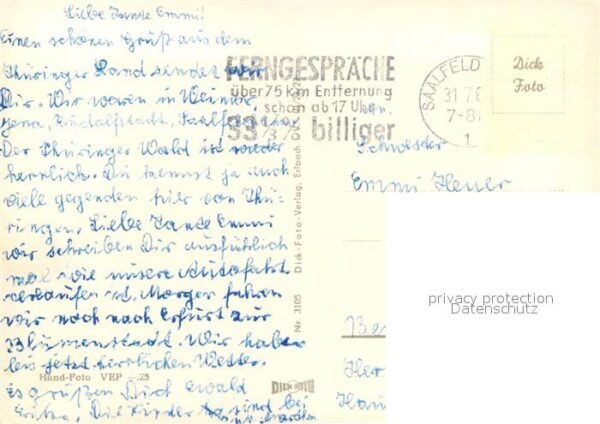 Liebe Tante Emmi!
Einen schönen Gruß aus dem
Thüringer Land sendet von
Dir. Wir waren in Weimar,
Jena, Rudolfstadt, Saalfeld
Der Thüringer Wald ist wieder
herrlich. Du kennst ja auch
viele gegenden hier von Thü-
ringen. Liebe Tante Emmi
wir schreiben Dir ausführlich
mal wie unsere Autofahrt
verlaufen ist. Morgen fahren
wir noch nach Erfurt zur
Blumenstadt. Wir haben
bis jetzt herrlichen Wetter.
Es grüßen Dich Ewald
Erika, Die Kinder sind bei
FERNGESPRÄCHE
über 75 km Entfernung
schon ab 17 Uhr
33 1/3 % billiger
SAALFELD
31.7.6
7-8
1
Dick
Foto
Schwester
Emmi Heuer
Be
Her
Hau
privacy protection
Datenschutz
Nr. 3105 Dick-Foto-Verlag, Erlbach
Hand-Foto VEP -.25
DICK FOTO